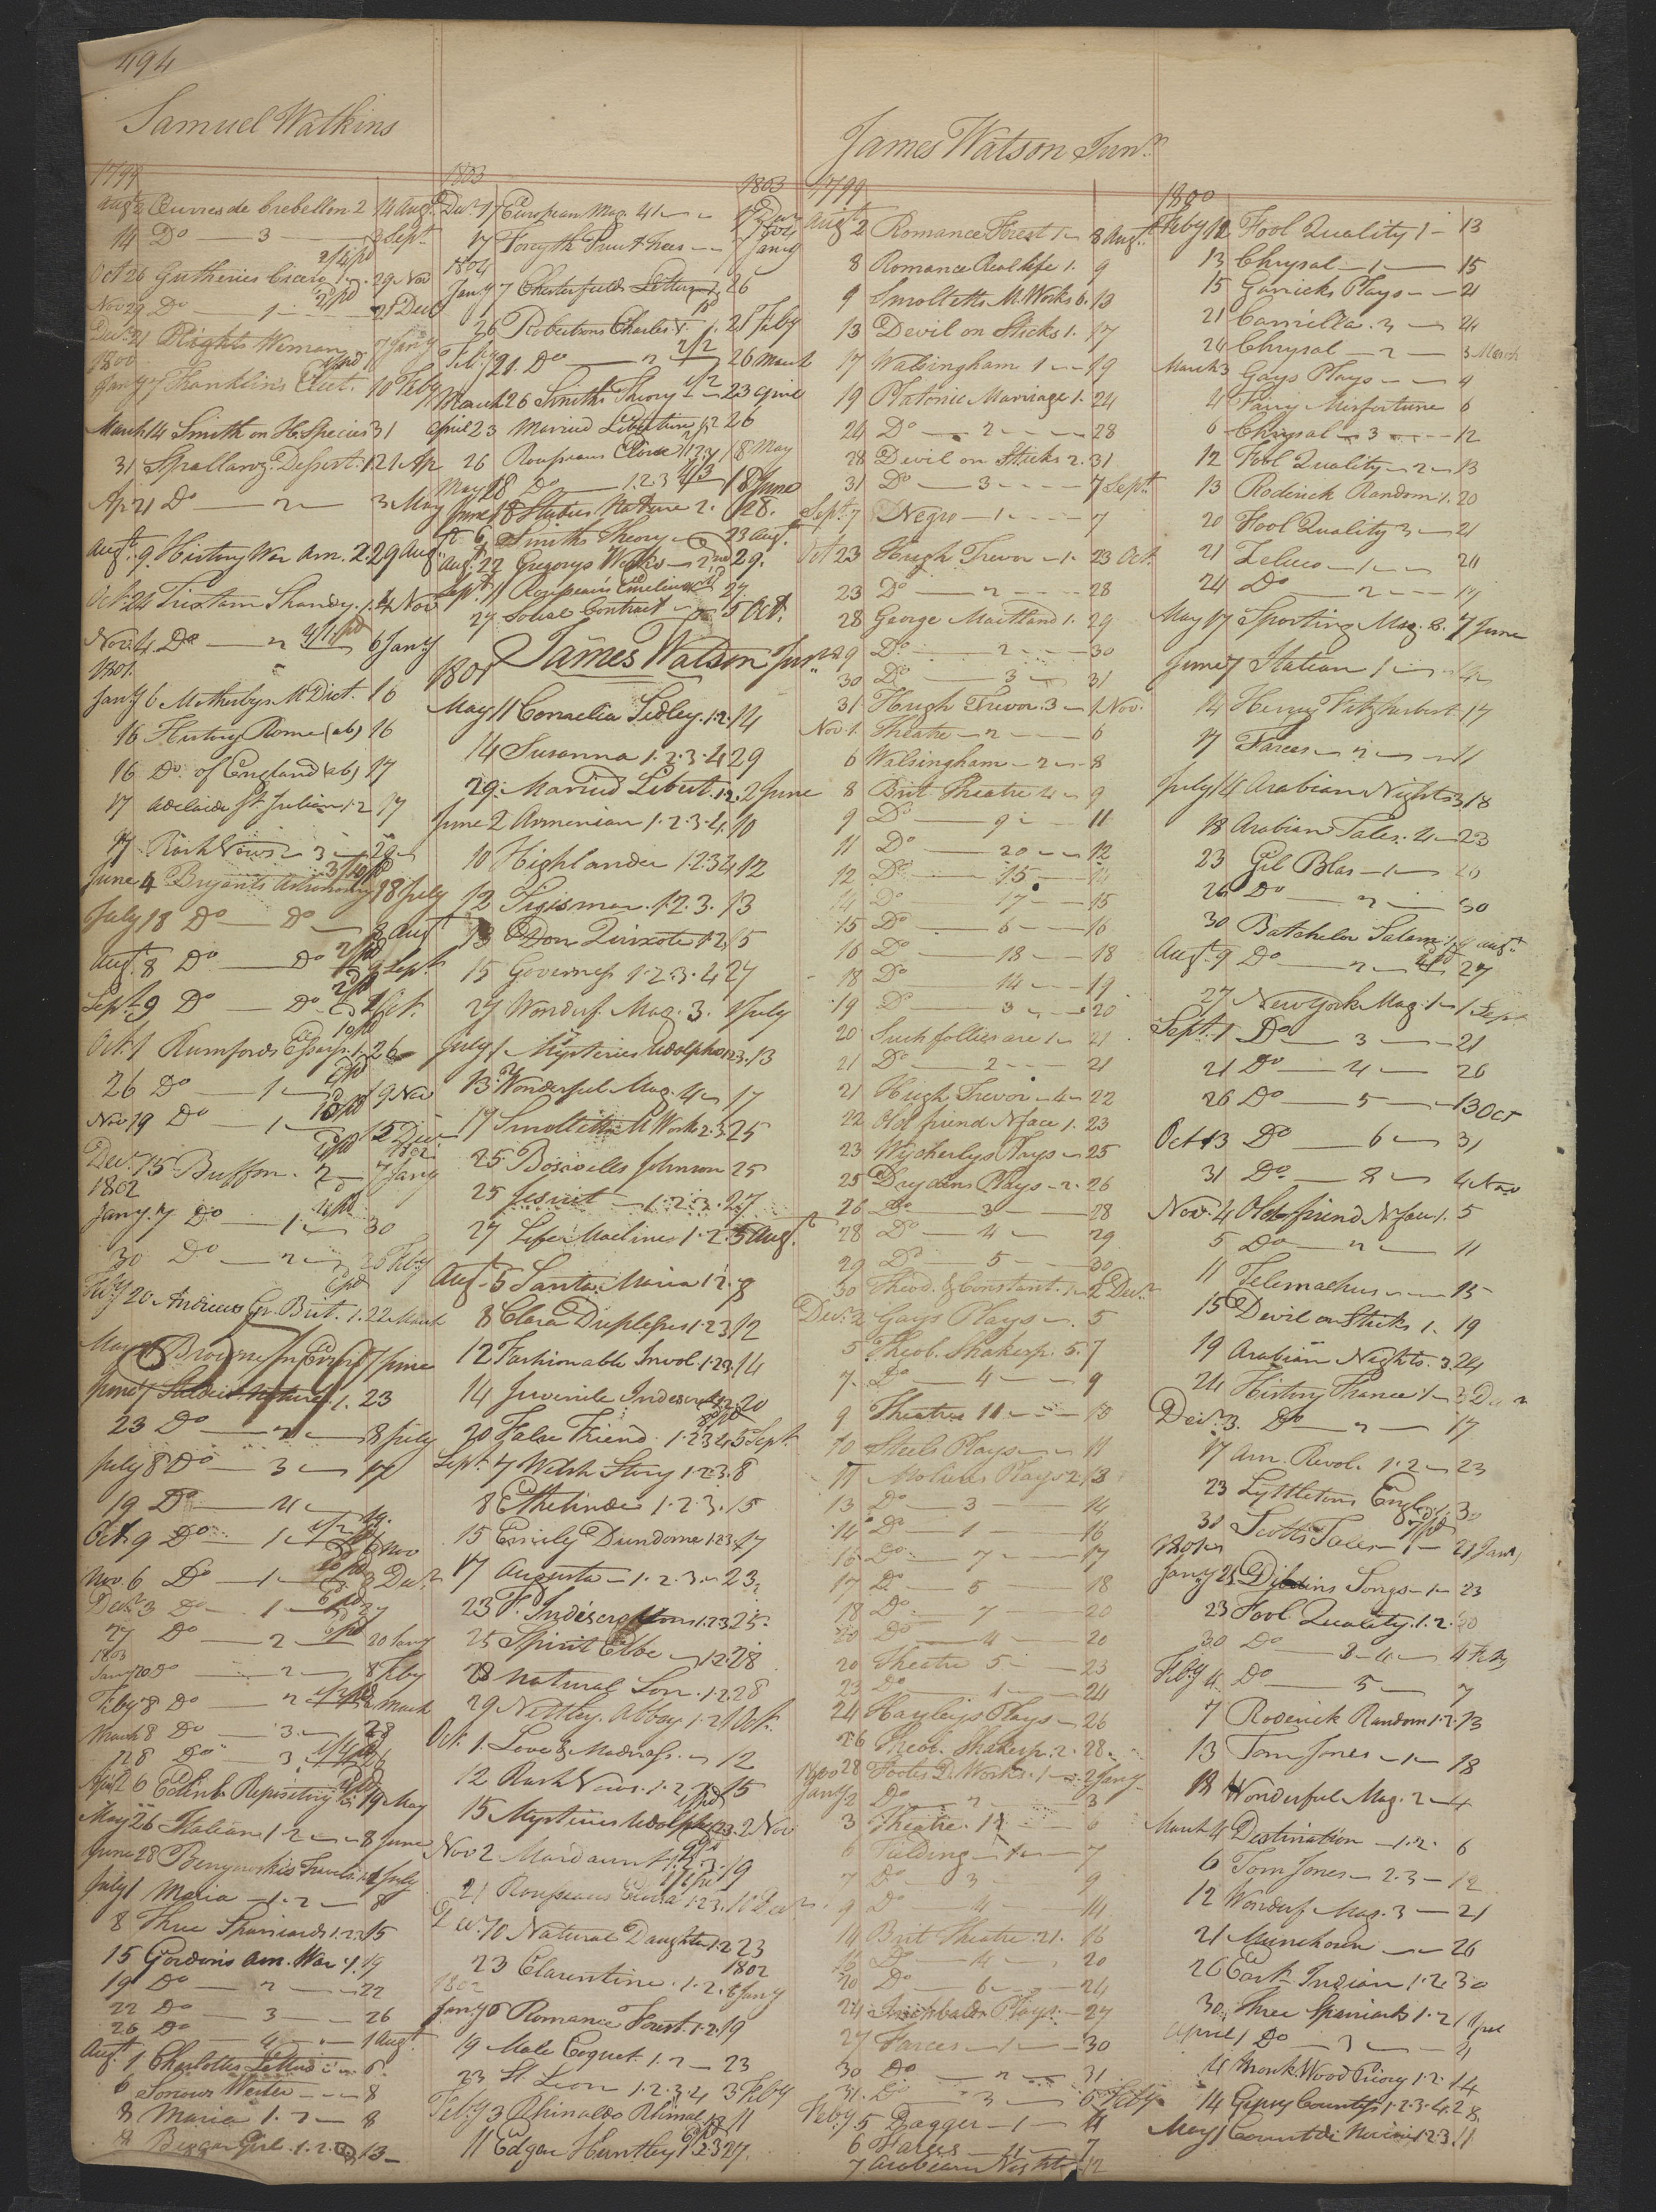 494
Samuel Watkins
1799
Augt 2 Œuvres de Crebellon 2 14 Augt
14 Do — 3 — 3 Sept
2/4 pd
Oct 26 Gutheries Cicero 1 29 Nov
Nov 29 Do — 1 — 21 Decr
Decr 21 Rights Woman 7 Jany
1800
Jany 7 Franklin's Elect. 10 Feby
March 14 Smith on H. Species 31
31 Spallanz. Dissert. 1 21 Ap
Ap 21 Do — 2 — 3 May
Augt 9 History War Am. 2 29 Aug
Oct 24 Tristam Shandy. 1. 4 Nov
Nov 4 Do — 2 6 Jany
1801
Jany 6 Motherbys M Dict. 16
16 History Rome (ab) 16
16 Do of England (ab) 17
17 Adelaide St Julian 1.2 17
17 Rash Vows 3 29
June 4 Bryants Astronomy 18 July
July 18 Do — Do — 8 Augt
Augt 8 Do — Do 9 Sept
Sept 9 Do — Do 1 Oct.
Oct. 1 Rumfords Essays. 1. 26
26 Do — 1 — 19 Nov
Nov 19 Do — 1 — 15 Decr
Decr 15 Buffon. 2 — 7 Jany
1802
Jany. 7 Do — 1 — 30
30 Do — 2 — Feby
Feby 20 Andrews Gr. Brit. 1. 22 March
June 7 Studies Nature. 1. 23
23 Do — 2 — 8 July
July 8 Do — 3 — 19
19 Do — 4
Oct. 9 Do — 1 — 6 Nov
Nov. 6 Do — 1 — 3 Decr
Decr 3 Do — 1 — 27
27 Do — 2 — 20 Jany
1803
Jany 20 Do — 2 — 8 Feby
Feby 8 Do — 2 — 8 March
March 8 Do — 3 — 28
28 Do — 3 — 26
April 26 Edinb. Repository 19 May
May 26 Italian 1.2 — 8 June
June 28 Benyowskis Travels 1.2 1 July
July 1 Maria — 1.2 — 8
8 Three Spaniards 1.2.3 15
15 Gordons Am. War. 1. 19
19 Do — 2 — 22
22 Do — 3 — 26
26 Do — 4 — 1 Augt
Augt 1 Charlottes Letters 6
6 Sorrows Werter — 8
8 Maria 1.2 — 8
8 Beggar Girl. 1.2.3 13
1803
Decr 17 European Mag. 41
17 Forsyth Fruit Trees 7 Jany
1804
Jany 7 Chesterfields Letters 26
26 Robertsons Charles V. 1. 21 Feby
Feby 21. Do — 2 26 March
March 26 Smiths Theory 1 23 April
April 23 Married Libertine 1.2 26
26 Rousseaus Eloisa 1.2.3 18 May
May 18 Do — 1.2.3 18 June
June 18 Studies Nature 2. 28.
6 Smiths Theory 23 Augt
Augt 22 Gregorys Works 29.
Sept 11 Rousseau's Emelius 27
27 Social Contract 15 Oct.
James Watson Junr
1801
May 11 Cornelia Sedley. 1.2. 14
14 Susanna 1.2.3.4 29
29. Married Libert. 1.2. 2 June
June 2 Armenian 1.2.3.4. 10
10 Highlander 1.2.3.4 12
12 Sigismar. 1.2.3. 13
13 Don Quixote 1.2. 15
15 Governess 1.2.3.4 27
27 Wonderf. Mag. 3. 1 July
July 1 Mysteries Udolpho 1.2.3. 13
13 Wonderful Mag. 4 17
17 Smolletts M Works 2.3 25
25 Boswells Johnson 25
25 Jesuit — 1.2.3. 27
27 Life Maclines 1.2. 5 Augt
Augt 5 Santa Maria 1.2. 8
8 Clara Duplessis 1.2.3 12
12 Fashionable Invol. 1.2.3. 14
14 Juvenile Indiscret. 20
20 False Friend. 1.2.3.4 5 Sept
Sept. 7 Welsh Story 1.2.3. 8
8 Ethelinde 1.2.3. 15
15 Emily Dundorne 1.2.3. 17
17 Augusta — 1.2.3. 23.
23 F. Indiscretions 1.2.3. 25.
25 Spirit Elbe 1.2. 28
28 Natural Son. 1.2. 28
29 Nettley Abbey 1.2 1 Oct.
Oct. 1. Love & Madness. 12
12 Rash Vows. 1.2 15
15 Mysteries Udolpho 1.2.3. 2 Nov
Nov 2 Mordaunt 1.2.3. 19
21 Rousseaus Eloisa 1.2.3. 10 Decr
Decr. 10 Natural Daughter 1.2 23
23 Clarentine. 1.2. 6 Jany
1802
Jany 6 Romance Forest. 1.2. 19
19 Male Coquet. 1.2 — 23
23 St Leon 1.2.3.4 3 Feby
Feby 3 Rhinaldo Rhinal. 11
11 Edgar Huntley 1.2.3 27.
James Watson Junr
1799
Augt 2 Romance Forest 1 8 Augt
8 Romance Real life 1. 9
9 Smolletts M. Works 6. 13
13 Devil on Sticks 1. 17
17 Walsingham 1 — 19
19 Platonic Marriage 1. 24
24 Do — 2 — 28
28 Devil on Sticks 2. 31
31 Do — 3 — 7 Sept
Sept 7 Negro — 1 — 7
Oct 23 Hugh Trevor — 1. 23 Oct.
23 Do — 2 — 28
28 George Maitland 1. 29
29 Do — 2 — 30
30 Do — 3 — 31
31 Hugh Trevor. 3 — 1 Nov.
Nov 1. Theatre — 2 — 6
6 Walsingham — 2 — 8
8 Brit Theatre 4 — 9
9 Do — 9 — 11
11 Do — 20 — 12
12 Do — 15 — 14
14 Do — 17 — 15
15 Do — 6 — 16
16 Do — 18 — 18
18 Do — 14 — 19
19 Do — 3 — 20
20 Such follies are 1 — 21
21 Do — 2 — 21
21 Hugh Trevor — 4 — 22
22 Old friend N face 1. 23
23 Wycherlys Plays — 25
25 Drydens Plays — 2. 26
26 Do — 3 — 28
28 Do — 4 — 29
29 Do — 5 — 30
30 Theod. & Constant. 1 — 2 Decr
Decr. 2 Gays Plays — 5
5 Theob. Shakesp. 5. 7
7. Do — 4 — 9
9 Theatre 11 — 10
10 Steels Plays — 11
11 Molieres Plays 2. 13
13 Do — 3 — 14
14 Do — 1 — 16
16 Do — 7 — 17
17 Do — 5 — 18
18 Do — 7 — 20
20 Do — 4 — 20
20 Theatre 5 — 23
23 Do — 1 — 24
24 Hayleys Plays — 26
26 Theob. Shakesp. 2. 28
28 Footes D. Works. 1 — 2 Jany
1800
Jany 2 Do — 2 — 3
3 Theatre. 12 — 6
6 Fielding — 1 — 7
7 Do — 3 — 9
9 Do — 4 — 14
14 Brit Theatre. 21. 16
16 Do — 4 — 20
20 Do — 6 — 24
24 Inchbalds Plays — 27
27 Farces — 1 — 30
30 Do — 2 — 31
31. Do — 3 — 5 Feby
Feby 5 Dagger — 1 — 6
6 Farces — 4 — 7
7 Arabian Nights 12
1800
Feby 12 Fool Quality 1 — 13
13 Chrysal — 1 — 15
15 Garricks Plays — 21
21 Camilla. 3 — 24
24 Chrysal — 2 — 3 March
March 3 Gays Plays — 4
4 Fairy Misfortune 6
6 Chrysal — 3 — 12
12 Fool Quality — 2 — 13
13 Roderick Random 1. 20
20 Fool Quality 3 — 21
21 Zeluco — 1 — 24
24 Do — 2
May 17 Sporting Mag. 8. 7 June
June 7 Italian 1 — 14
14 Henry Fitzherbert. 17
17 Farces — 2
July 14 Arabian Nights 3 18
18 Arabian Tales. 4 — 23
23 Gil Blas — 1 — 26
26 Do — 2 — 30
30 Batchelor Salam. 1. 9 Augt
Augt. 9 Do — 2 — 27
27 New York Mag. 1 — 1 Sept
Sept. 1 Do — 3 — 21
21 Do — 4 — 26
26 Do — 5 — 13 Oct
Oct 13 Do — 6 — 31
31 Do — 8 — 4 Nov
Nov. 4 Old friend N. face 1. 5
5 Do — 2 — 11
11 Telemachus — 15
15 Devil on Sticks 1. 19
19 Arabian Nights. 3. 24
24 History France. 1 — 3 Decr
Decr. 3. Do — 2 — 17
17 Am. Revol. 1.2 — 23
23 Lyttletons Engl. 30
31 Scotts Tales — 1 — 21 Jany
1801
Jany 21 Dibdins Songs — 1 — 23
23 Fool Quality. 1.2. 30
30 Do — 3.4 — 4 Feby
Feby 4 Do — 5 — 7
7 Roderick Random 1.2. 13
13 Tom Jones — 1 — 18
18 Wonderful Mag. 2 — 4
March 4 Destination — 1.2. 6
6 Tom Jones — 2.3 — 12
12 Wonderf Mag. 3 — 21
21 Munchosen — 26
26 East Indian 1.2. 30
30. Three Spaniards 1.2 1 April
April 1 Do — 3 — 4
4 Monk Wood Priory 1.2. 14
14 Gipsy Countess 1.2.3.4. 28
May 1 11